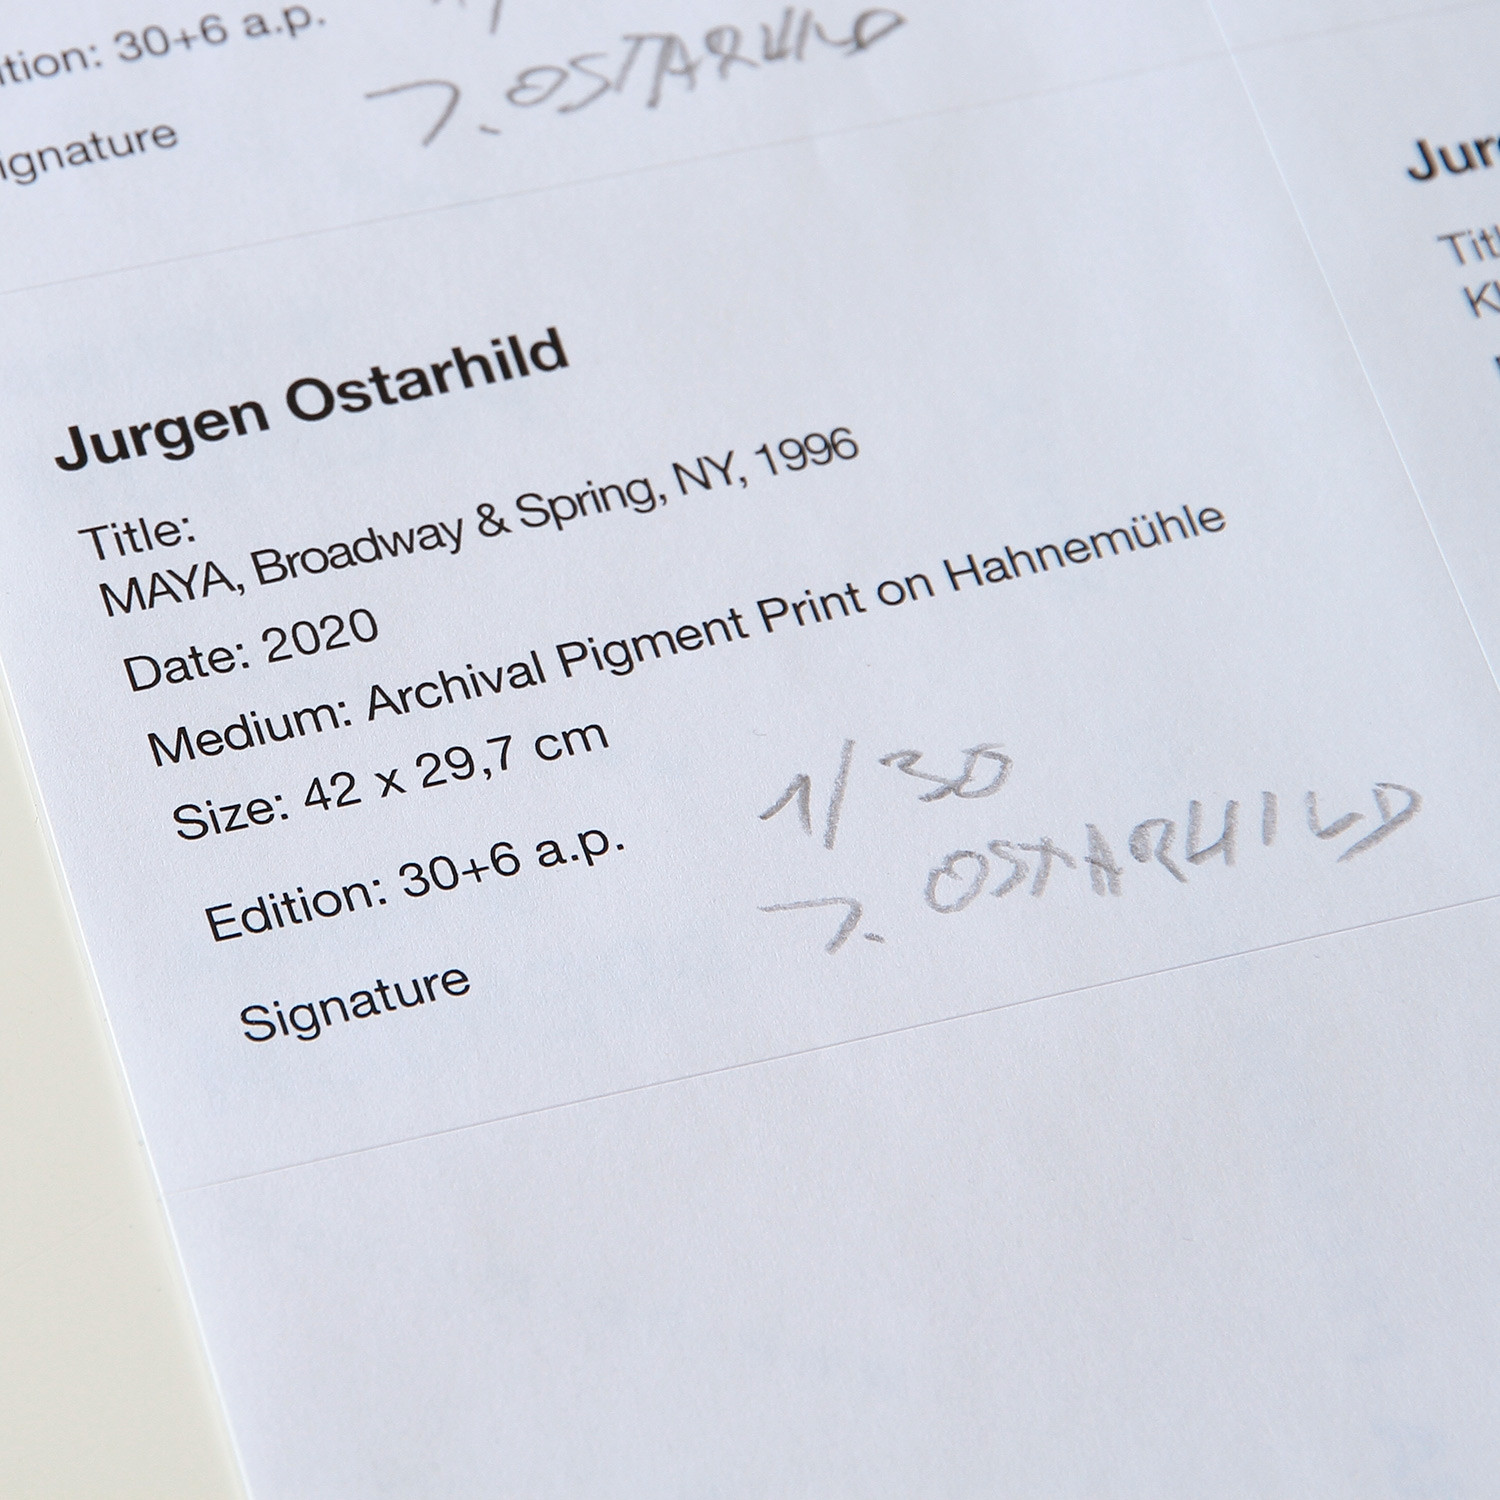 tion: 30+6 a.p.
ignature
J. OSTARHILD
Jurgen Ostarhild
Title:
MAYA, Broadway & Spring, NY, 1996
Date: 2020
Medium: Archival Pigment Print on Hahnemühle
Size: 42 x 29,7 cm
Edition: 30+6 a.p.
1/30
Signature
J. OSTARHILD
Jur
Titl